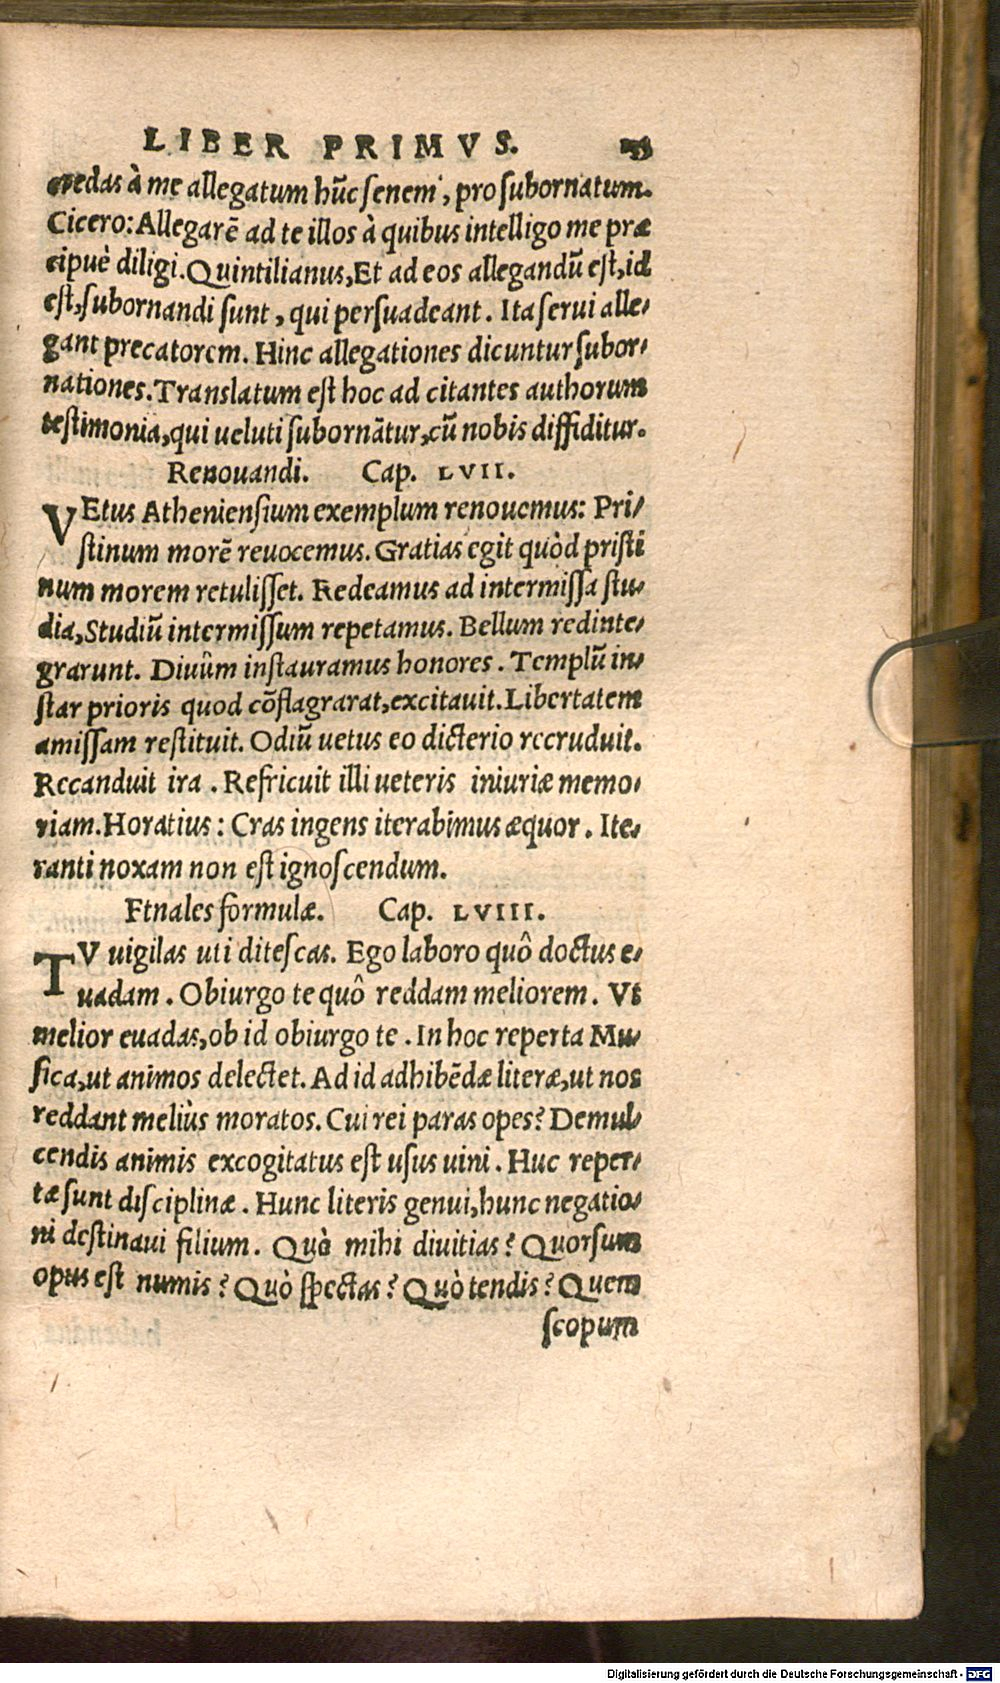 LIBER PRIMVS.
credas à me allegatum hūc senem, pro subornatum.
Cicero: Allegarē ad te illos à quibus intelligo me præ
cipuè diligi. Quintilianus, Et ad eos allegandū est, id
est, subornandi sunt, qui persuadeant. Ita serui alle-
gant precatorem. Hinc allegationes dicuntur subor-
nationes. Translatum est hoc ad citantes authorum
testimonia, qui ueluti subornātur, cū nobis diffiditur.
Renouandi. Cap. LVII.
VEtus Atheniensium exemplum renouemus: Pri-
stinum morē reuocemus. Gratias egit quòd pristi
num morem retulisset. Redeamus ad intermissa stu-
dia, Studiū intermissum repetamus. Bellum redinte-
grarunt. Diuûm instauramus honores. Templū in-
star prioris quod cōflagrarat, excitauit. Libertatem
amissam restituit. Odiū uetus eo dicterio recruduit.
Recanduit ira. Refricuit illi ueteris iniuriæ memo-
riam. Horatius: Cras ingens iterabimus æquor. Ite-
ranti noxam non est ignoscendum.
Ftnales formulæ. Cap. LVIII.
TV uigilas uti ditescas. Ego laboro quô doctus e-
uadam. Obiurgo te quô reddam meliorem. Vt
melior euadas, ob id obiurgo te. In hoc reperta Mu-
sica, ut animos delectet. Ad id adhibēdæ literæ, ut nos
reddant meliùs moratos. Cui rei paras opes? Demul-
cendis animis excogitatus est usus uini. Huc reper-
tæ sunt disciplinæ. Hunc literis genui, hunc negatio-
ni destinaui filium. Quò mihi diuitias? Quorsum
opus est numis? Quò spectas? Quò tendis? Quem
scopum
Digitalisierung gefördert durch die Deutsche Forschungsgemeinschaft - DFG